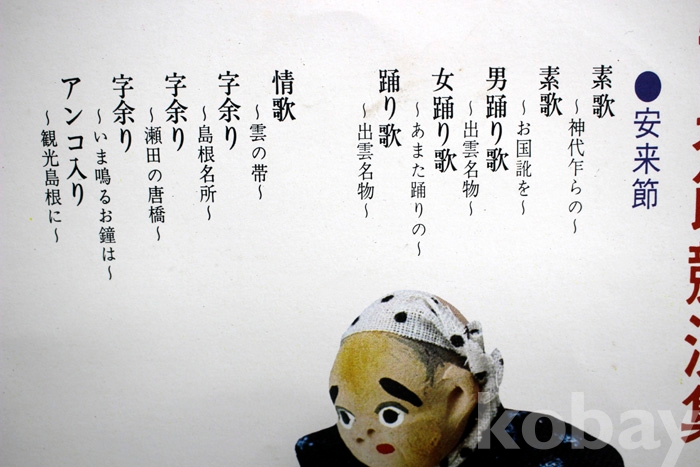 ●安来節
素歌
～神代乍らの～
素歌
～お国訛を～
男踊り歌
～出雲名物～
女踊り歌
～あまた踊りの～
踊り歌
～出雲名物～
情歌
～雲の帯～
字余り
～島根名所～
字余り
～瀬田の唐橋～
字余り
～いま鳴るお鐘は～
アンコ入り
～観光島根に～
kobay